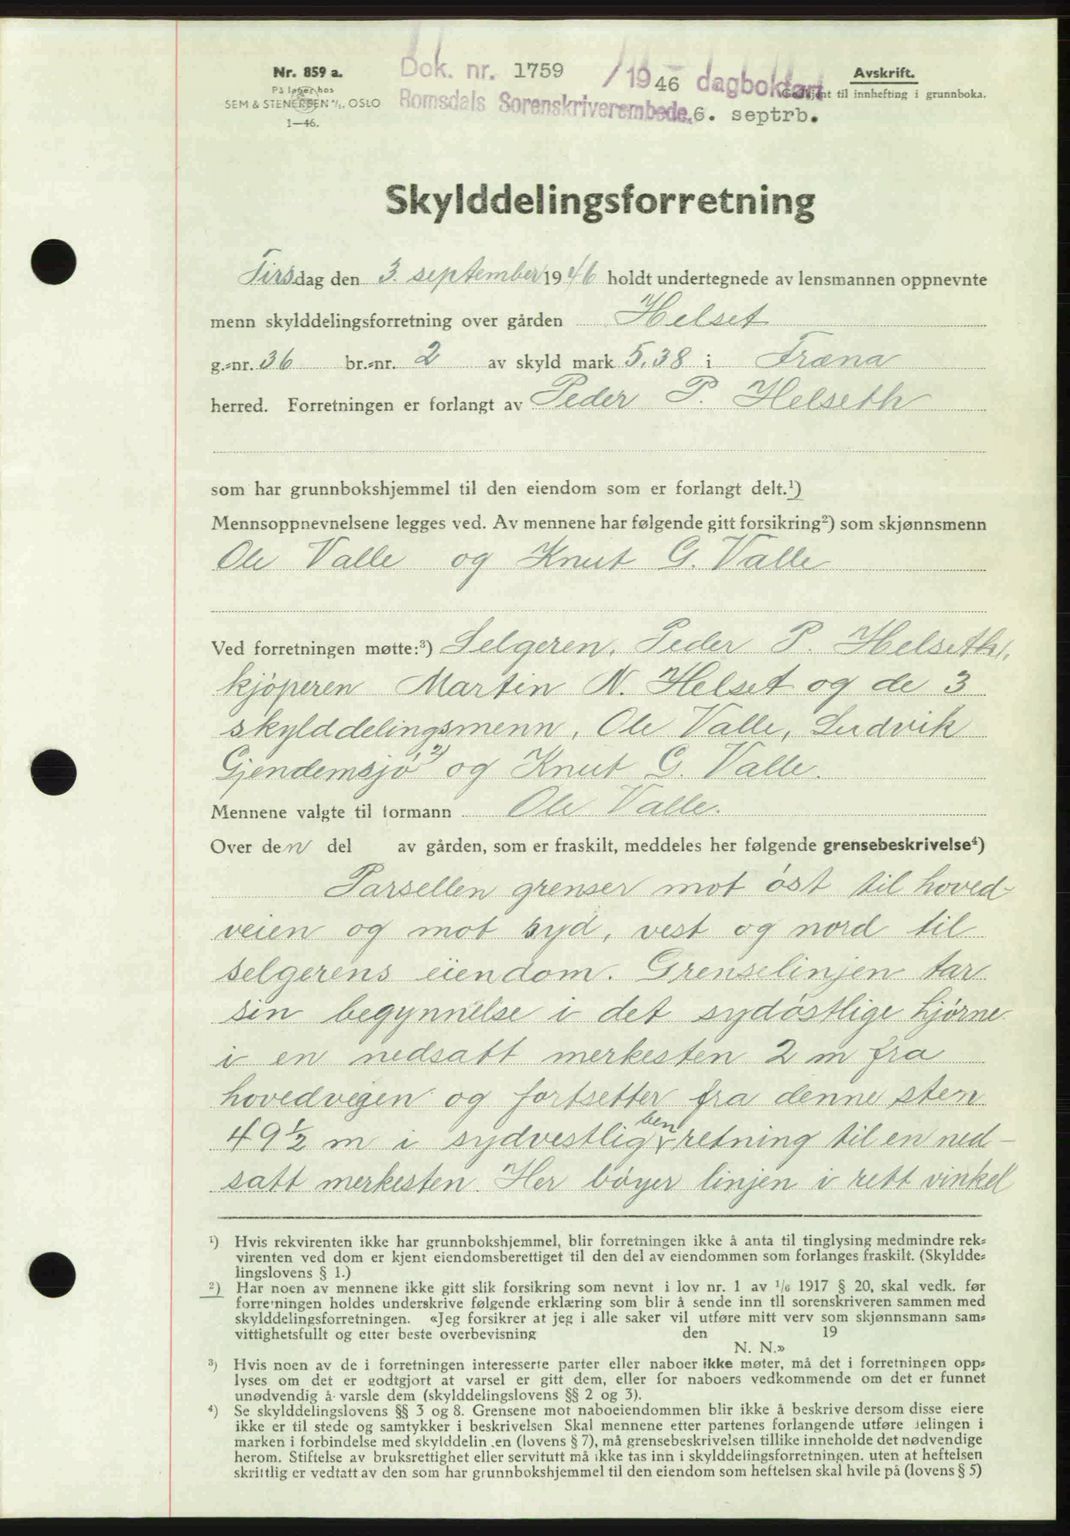 Nr. 859 a.
På lager hos
SEM & STENERSEN A/S. OSLO
1—46.
Dok. nr. 1759 /1946 dagbokført
Romsdals Sorenskriverembede. 6. septrb.
Avskrift.
Godkjent til innhefting i grunnboka.
Skylddelingsforretning
Tirsdag den 3. september 1946 holdt undertegnede av lensmannen oppnevnte
menn skylddelingsforretning over gården Helset
g.=nr. 36 br.=nr. 2 av skyld mark 5,38 i Fræna
herred. Forretningen er forlangt av Peder P. Helseth
som har grunnbokshjemmel til den eiendom som er forlangt delt.¹)
Mennsoppnevnelsene legges ved. Av mennene har følgende gitt forsikring²) som skjønnsmenn
Ole Valle og Knut G. Valle
Ved forretningen møtte:³) Selgeren, Peder P. Helseth,
kjøperen Martin N. Helset og de 3
skylddelingsmenn, Ole Valle, Ludvik
Gjendemsjø ²) og Knut G. Valle.
Mennene valgte til formann Ole Valle.
Over den del av gården, som er fraskilt, meddeles her følgende grensebeskrivelse⁴)
Parsellen grenser mot øst til hoved-
veien og mot syd, vest og nord til
selgerens eiendom. Grenselinjen tar
sin begynnelse i det sydøstlige hjørne
i en nedsatt merkesten 2 m fra
hovedveien og fortsetter fra denne sten
49 ½ m i sydvestlig ben retning til en ned-
satt merkesten. Her bøyer linjen i rett vinkel
¹) Hvis rekvirenten ikke har grunnbokshjemmel, blir forretningen ikke å anta til tinglysing medmindre rek=
virenten ved dom er kjent eiendomsberettiget til den del av eiendommen som forlanges fraskilt. (Skyldde=
lingslovens § 1.)
²) Har noen av mennene ikke gitt slik forsikring som nevnt i lov nr. 1 av 1/6 1917 § 20, skal vedk. før
forretningen holdes underskrive følgende erklæring som blir å sende inn til sorenskriveren sammen med
skylddelingsforretningen. «Jeg forsikrer at jeg i alle saker vil utføre mitt verv som skjønnsmann sam=
vittighetsfullt og etter beste overbevisning den 19
N. N.»
³) Hvis noen av de i forretningen interesserte parter eller naboer ikke møter, må det i forretningen opp=
lyses om det er godtgjort at varsel er gitt dem, eller for naboers vedkommende om det er funnet
unødvendig å varsle dem (skylddelingslovens §§ 2 og 3).
⁴) Se skylddelingslovens §§ 3 og 8. Grensene mot naboeiendommen blir ikke å beskrive dersom disse eiere
ikke er til stede og samtykker i beskrivelsen Skal mennene etter partenes forlangende utføre delingen i
marken i forbindelse med skylddelin en (lovens § 7), må grensebeskrivelsen tillike inneholde det nødvendige
herom. Stiftelse av bruksrettighet eller servitutt må ikke tas inn i skylddelingsforretningen. uten at heftelsen
skriftlig er vedtatt av den som har grunnbokshjemmel til den eiendom som heftelsen skal hvile på (lovens § 5)